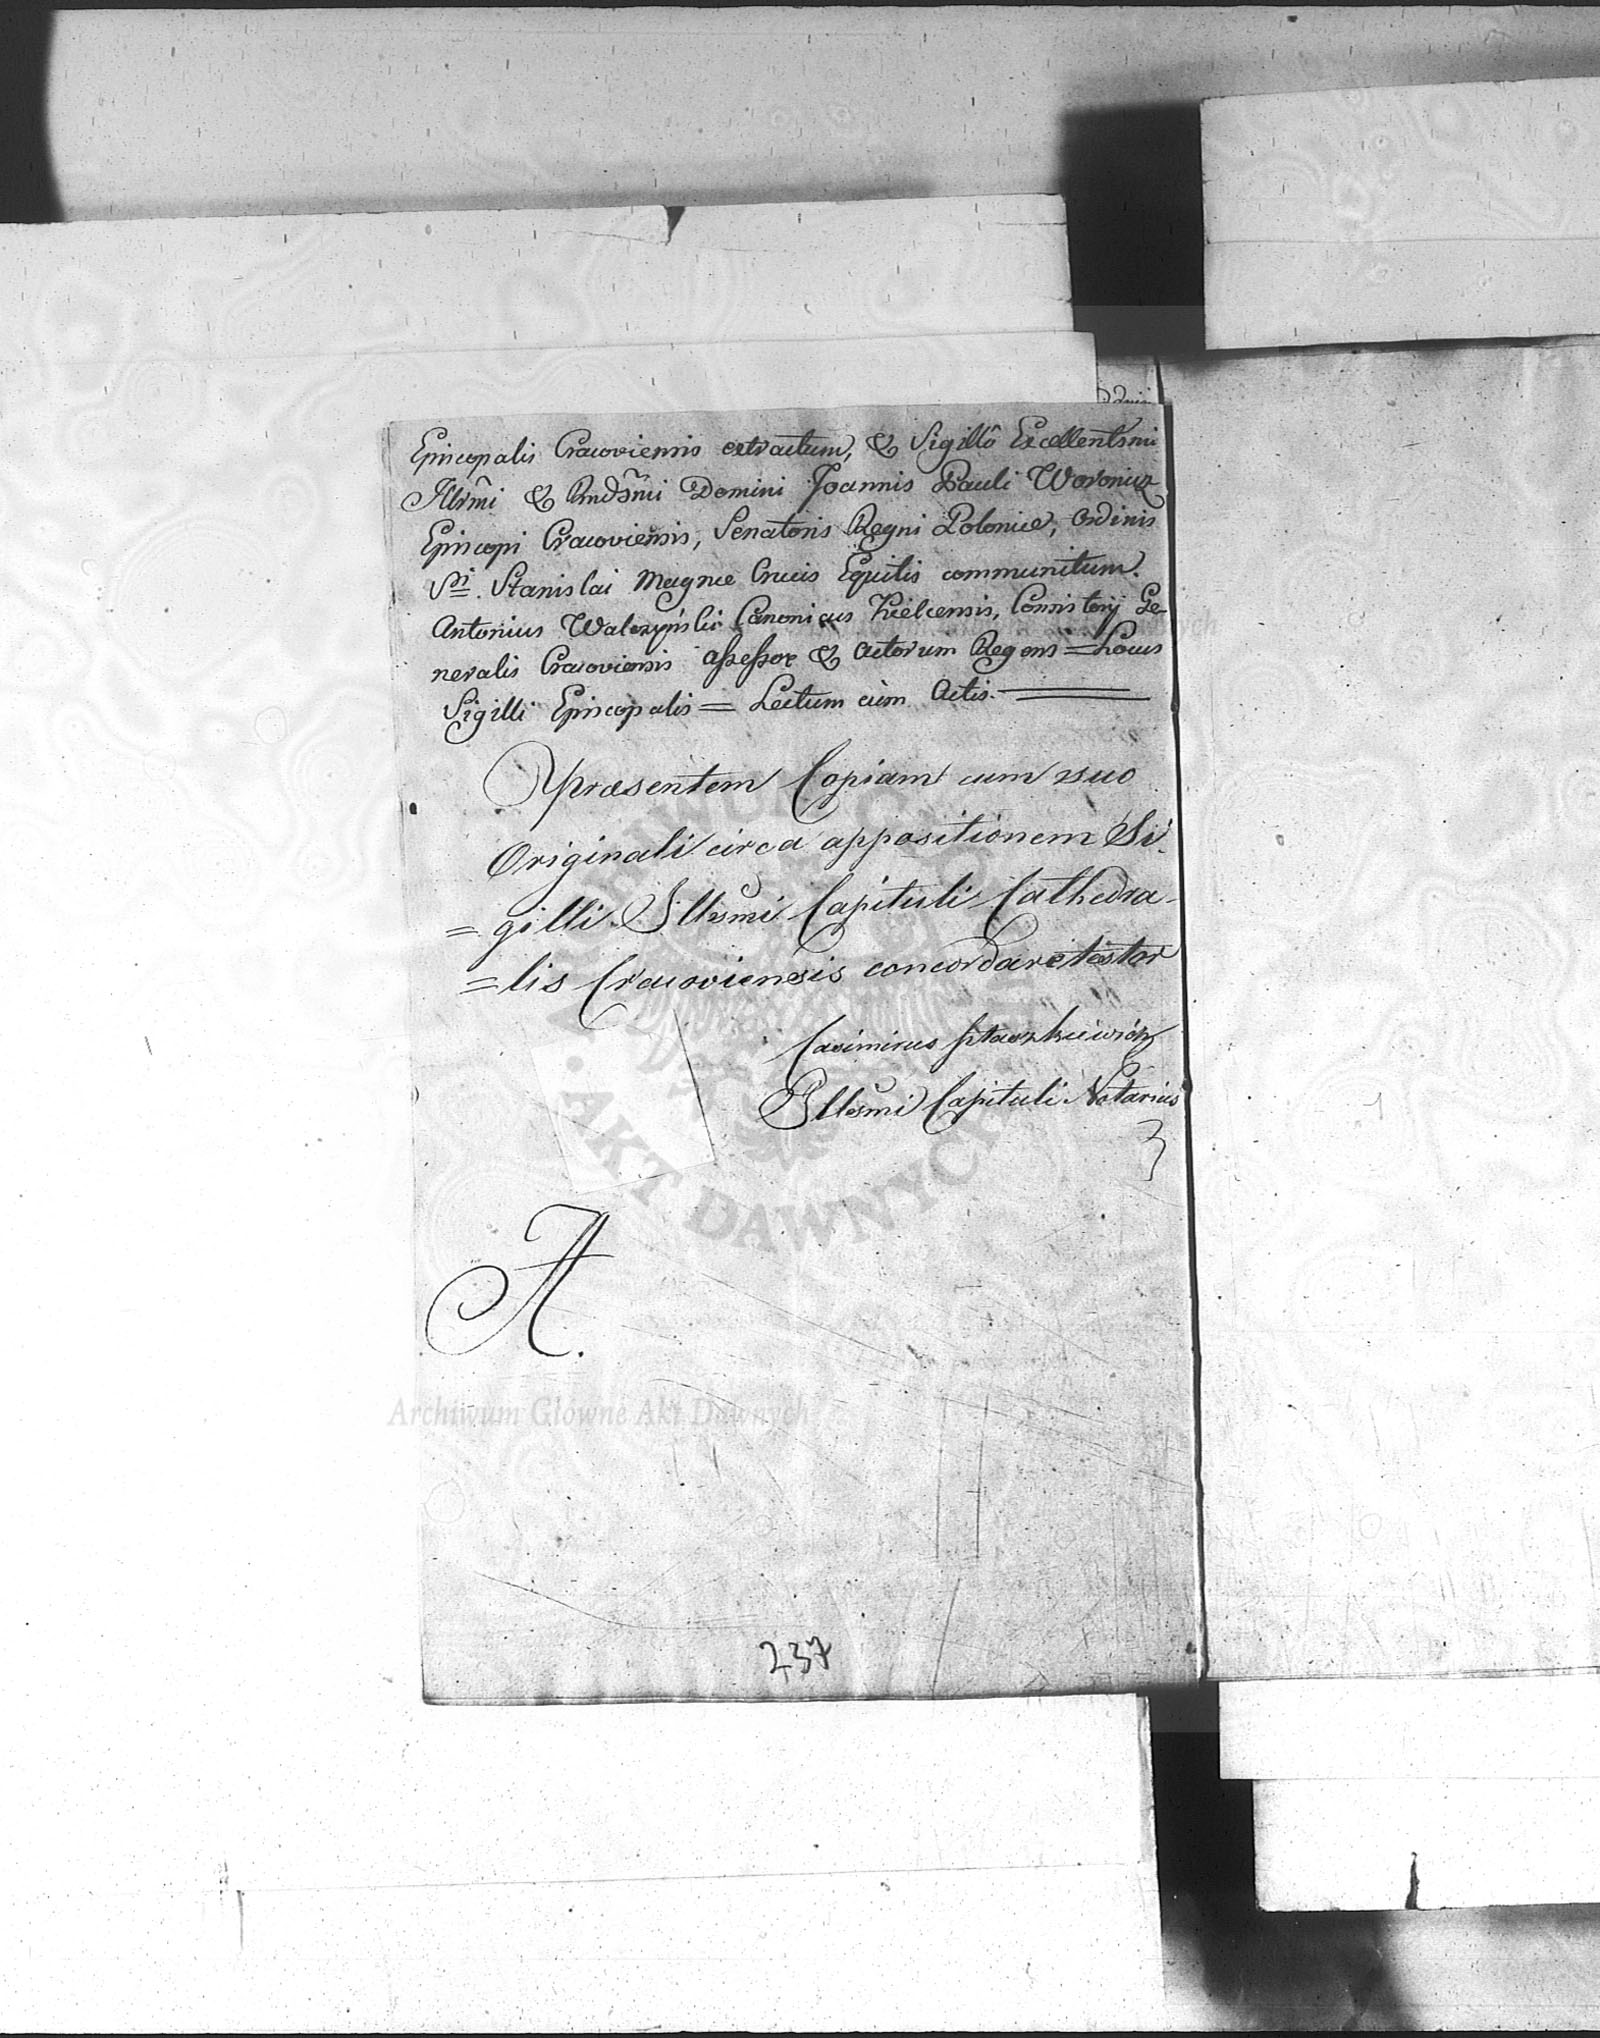 Episcopalis Cracoviensis extractum, & Sigillô Excellentsmi
Illrmi & Rndsmi Domini Joannis Pauli Woronicz
Episcopi Cracoviensis, Senatoris Regni Poloniæ, Ordinis
Sti. Stanislai Magnæ Crucis Equitis communitum.
Antonius Walczyński Canonicus Kielcensis, Consistorij Ge-
neralis Cracoviensis Assessor & Actorum Regens = Locus
Sigilli Episcopalis = Lectum cùm Actis.
Præsentem Copiam cum suo
Originali circa appositionem Si
= gilli Illsmi Capituli Cathedra-
= lis Cracoviensis concordare testor
Casimirus Ptaszkiewicz
Illsmi Capituli Notarius
A.
Archiwum Główne Akt Dawnych
AKT DAWNYCH
237